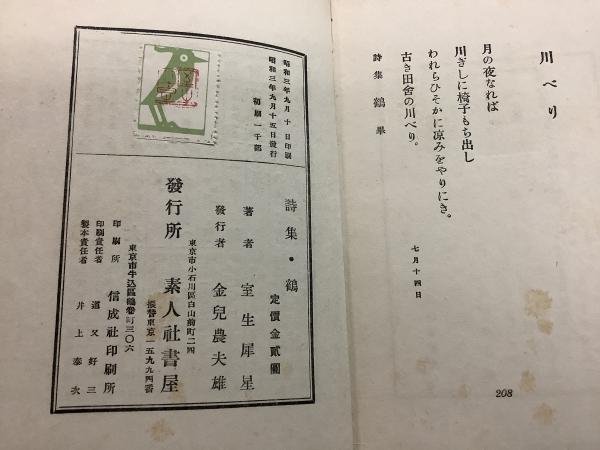 川べり
月の夜なれば
川ぎしに椅子もち出し
われらひそかに凉みをやりにき。
古き田舎の川べり。
七月十四日
詩集 鶴 畢
208
昭和三年九月十日印刷
昭和三年九月十五日發行
初刷一千部
詩集・鶴
定價金貳圓
著者 室生犀星
發行者 金兒農夫雄
東京市小石川區白山前町二四
發行所 素人社書屋
振替東京一五九九四番
東京市牛込區鶴巻町三〇六
印刷所 信成社印刷所
印刷責任者 道又好三
製本責任者 井上泰次